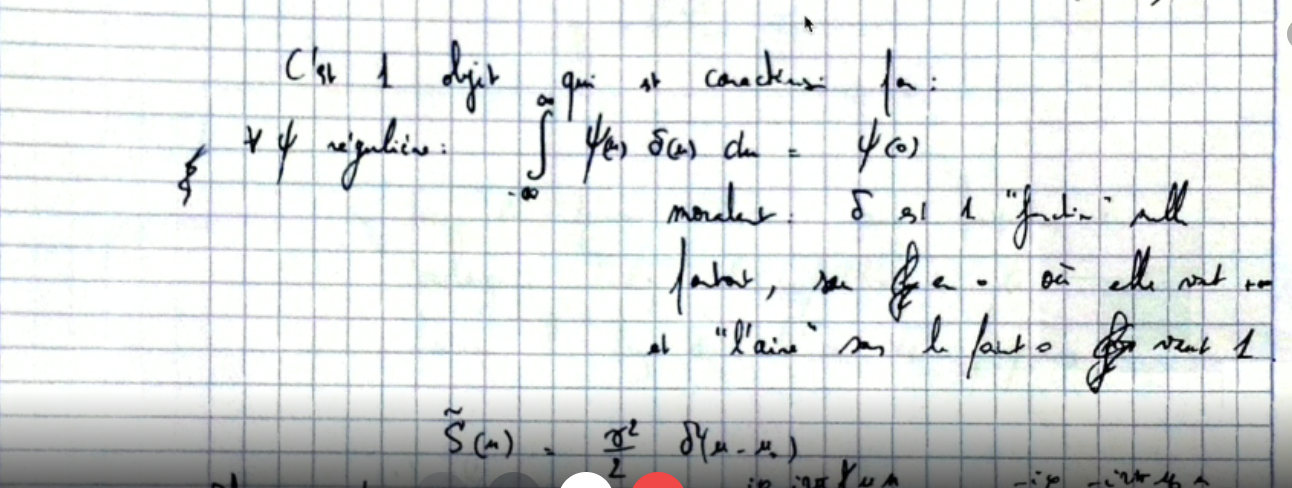 C'est 1 objet qui est caractérisé par :
∀ ψ régulière : ∫_{-∞}^{∞} ψ(u) δ(u) du = ψ(0)
moralement : δ est 1 "fonction" nulle
partout, sauf en 0 où elle vaut +∞
et "l'aire" sous le point 0 vaut 1
S̃(u) = γ²/2 δ(u - u₀)